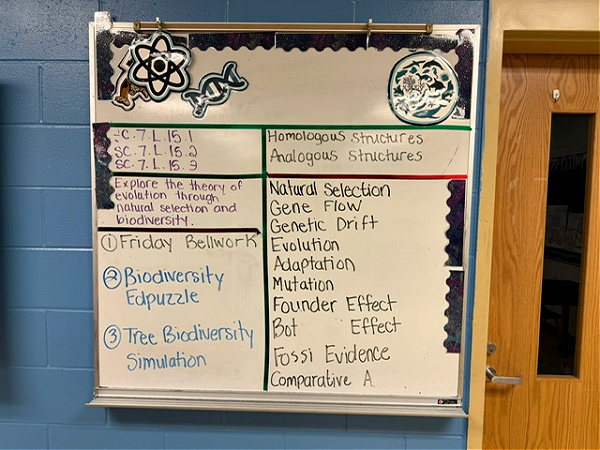 SC.7.L.15.1
SC.7.L.15.2
SC.7.L.15.3
Explore the theory of
evolation through
natural selection and
biodiversity.
① Friday Bellwork
② Biodiversity
Edpuzzle
③ Tree Biodiversity
Simulation
Homologous structures
Analogous structures
Natural Selection
Gene Flow
Genetic Drift
Evolution
Adaptation
Mutation
Founder Effect
Bot Effect
Fossi Evidence
Comparative A